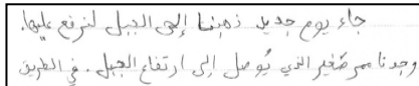 جاء يوم جديد ذهبنا إلى الجبل لنرفع عليها.
وجدنا ممر صغير الذي يُوصل إلى ارتفاع الجبل. في الطريق